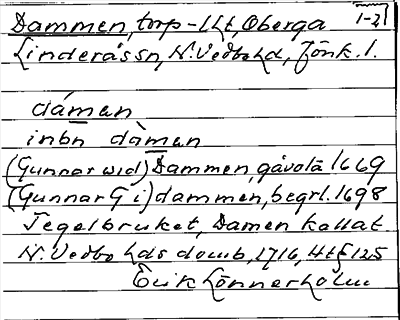 Dammen, torp-Lht, Oberga 1-2
Linderås sn, N. Vedbo hd, Jönk. l.
dámen
inbn dàmen
(Gunnar wid) Dammen, gåvolä 1669
(Gunnar G i) dammen, begrl. 1698
Tegelbruket, Damen kallat
N. Vedbo hds domb, 1716, Ht § 125
Erik Lönnerholm